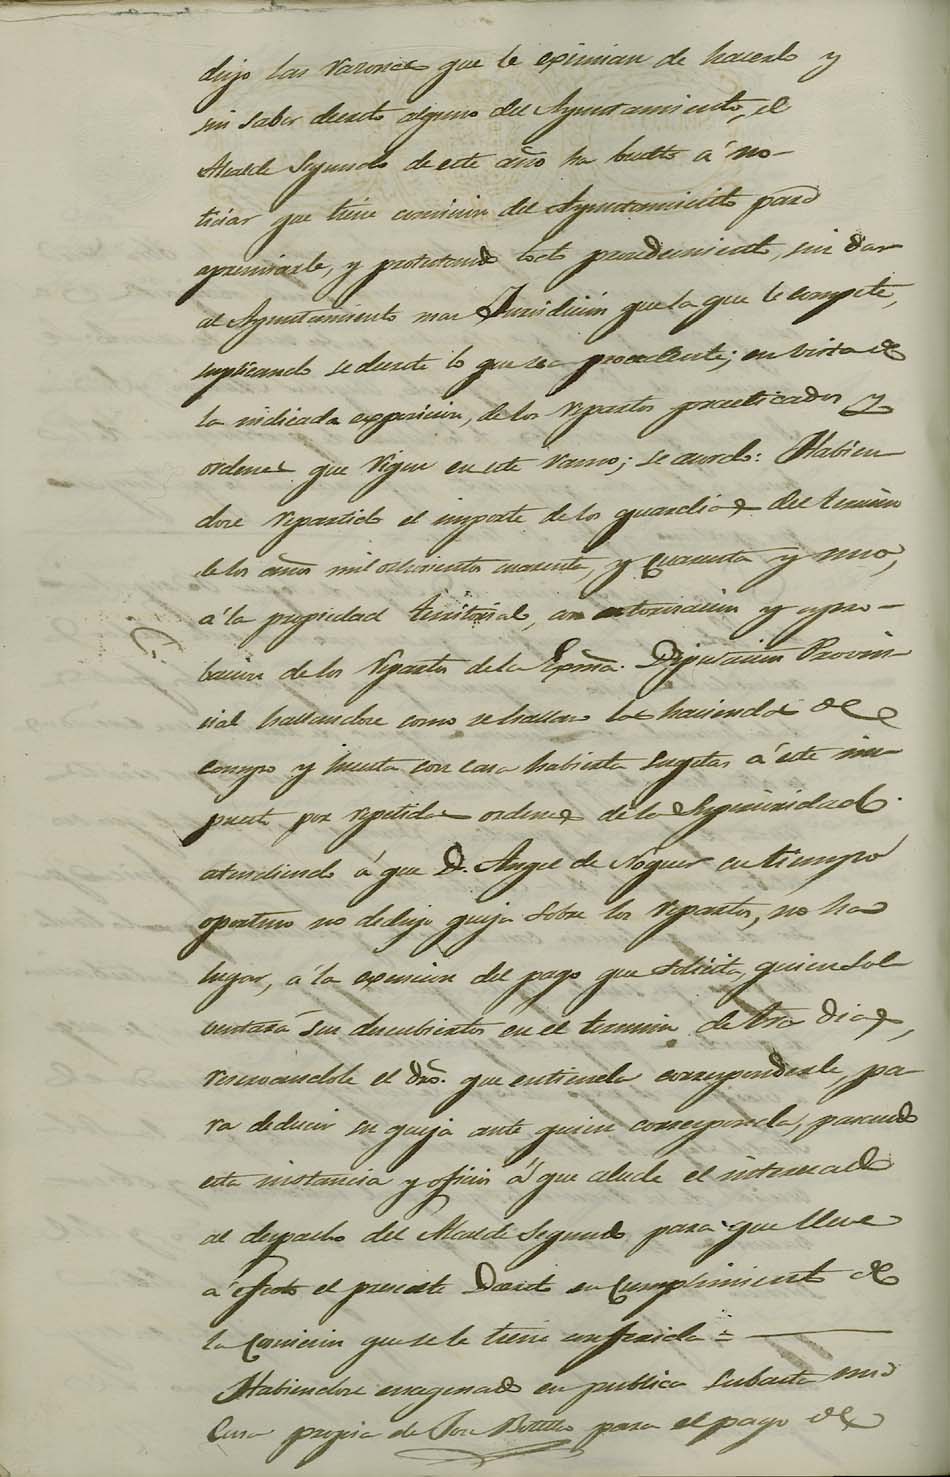 dijo las razones que le eximian de hacerlo y
sin saber decreto alguno del Ayuntamiento, el
Alcalde Segundo de este año ha buelto á no-
ticiar que tiene comision del Ayuntamiento para
apremiarle, y protestando todo procedimiento, sin dar
al Ayuntamiento mas Jurisdicion que la que le compete,
suplicando se decrete lo que sea procedente; en vista de
la indicada exposicion, de los repartos practicados y
ordenes que rigen en este ramo; se acordo: Habien-
dose repartido el importe de los guardias del termino
de los años mil ochocientos cuarenta, y Cuarenta y uno,
á la propiedad territorial, con autorizacion y apro-
bacion de los repartos de la Exma. Diputacion Provin-
cial hallandose como se hallan las haciendas de
campo y huerta con casa habierta sugetas á este im-
puesto por repetidas ordenes de la Superioridad.
atendiendo á que D. Angel de Noguer en tiempo
oportuno no dedujo queja sobre los repartos, no ha
lugar, á la exencion del pago que solicita, quien sol-
ventará sus descubiertos en el termino de tres dias,
reservandole el dro. que entienda corresponderle, pa-
ra deducir su queja ante quien corresponda, pasando
esta instancia y oficios á que alude el interesado
al despacho del Alcalde Segundo para que lleve
á efecto el presente Decreto en Cumplimiento de
la Comision que se le tiene conferida =
Habiendose enagenado en publica subasta una
Casa propia de Jose para el pago de